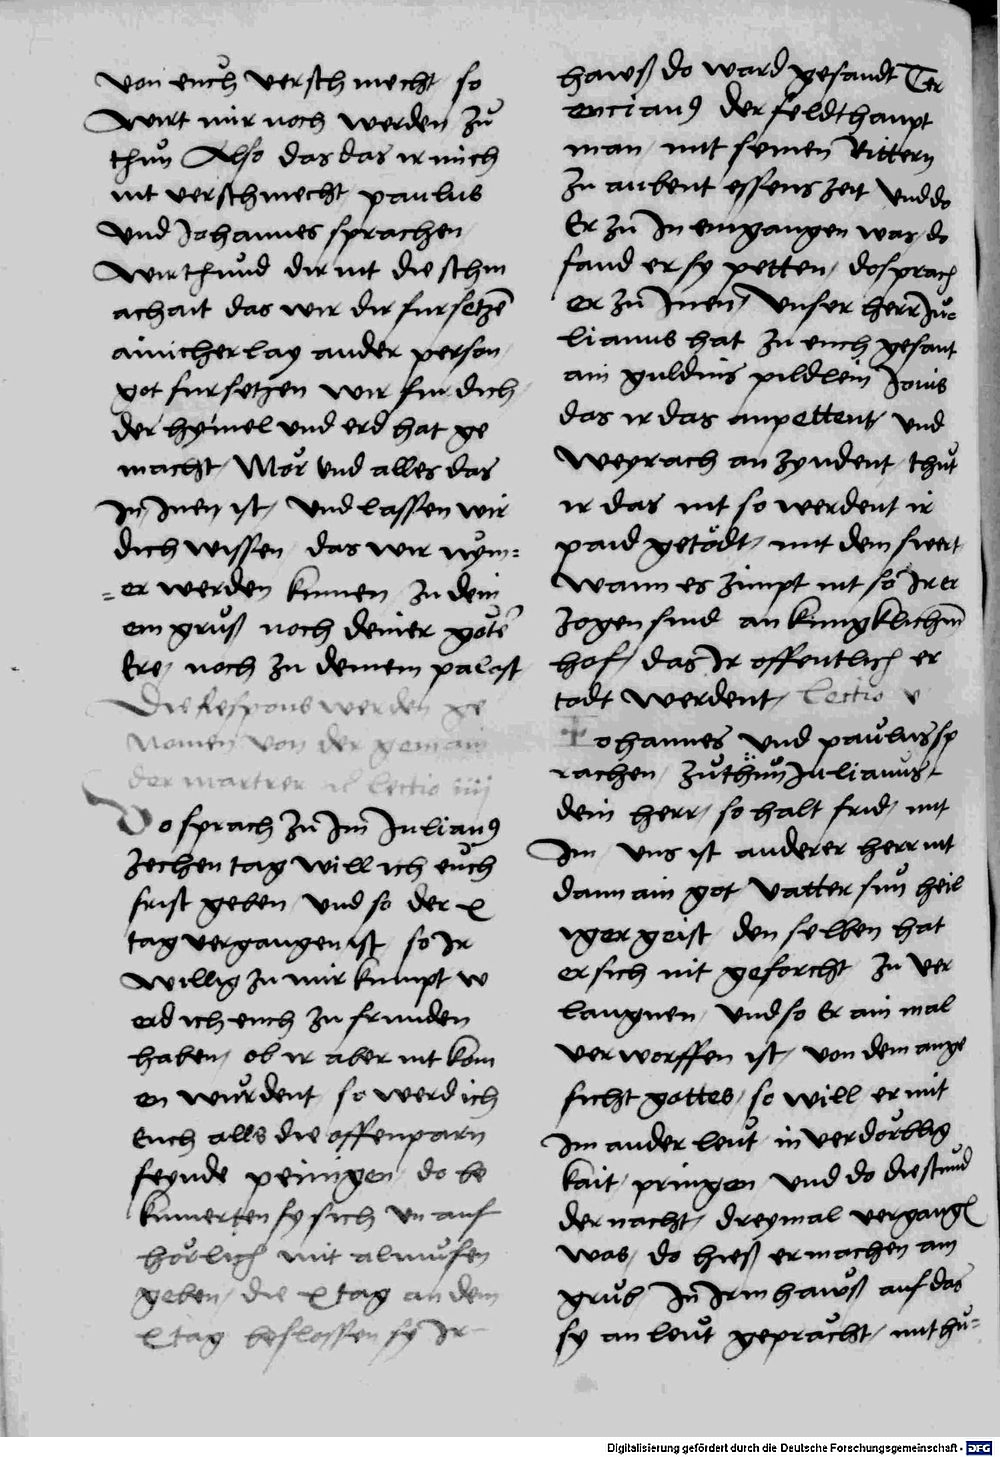 von euch verschmecht so
wirt mir noch werden zů
thůn Also das das ir mich
nit verschmecht paulus
und Johannes sprachen
wir thůnd dir nit die schm
achait das wir dir fursetzē
ainicherlay ander person
got fursetzen wir fur dich
der hymel und erd hat ge
macht Mör und alles das
in Jnen ist und lassen wir
dich wissen das wir nym=
=er werden kumen zu dein
em gruß noch deiner götē
Ere noch zu deinem palast
Die Respons werden ge
nomen von der gemain
der martrer Lectio iiij
Do sprach zů Jm Julianꝰ
Zechen tag will ich eüch
frist geben und so der x
tag vergangen ist so Jr
willig zu mir kumpt w
erd ich euch zu frunden
haben ob ir aber nit kom
en wůrdent so werd ich
Euch alls die offenparn
feynde peinigen do be
kumerten sy sich un auf
hörlich mit almůsen
geben die x tag an dem
x tag beslossen sy Jr
hawß do ward gesandt Ter
encianꝰ der feldthaupt
man mit seinen Rittern
zu aubent essens zeit und do
Er zů Jn eingangen was do
fand er sy petten do sprach
er zů Jnen Unser herr Jů=
lianus hat zu euch gesant
ain guldins pildlein Jovis
das ir das anpettent und
weyrach anzyndent thůt
ir das nit so werdent ir
paid getödt mit dem swert
wann es zimpt nit so Jr er
zogen sind an kungklichm̄
hof das Jr offentlich er
todt werdent Lectio v
Johannes und paulus sp
rachen zů thůn Julianus
dein herr so halt frid mit
Jm uns ist anderer herr nit
dann ain got vatter sun heil
iger geist den selben hat
er sich nit geforcht zu ver
laugnen und so Er ain mal
verworffen ist von dem ange
sicht gottes so will er mit
Jm ander leüt in verdörblig
kait pringen und do die stund
der nacht dreymal vergangē
was do hieß er machen ain
grůb Jn Jrm hawß auf das
sy an leüt gepracht mit hů=
Digitalisierung gefördert durch die Deutsche Forschungsgemeinschaft - DFG